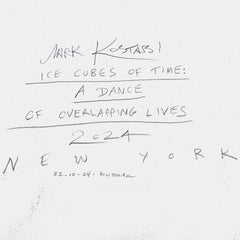 MARK KOSTABI
ICE CUBES OF TIME:
A DANCE
OF OVERLAPPING LIVES
2024
NEW YORK
22.10.24.